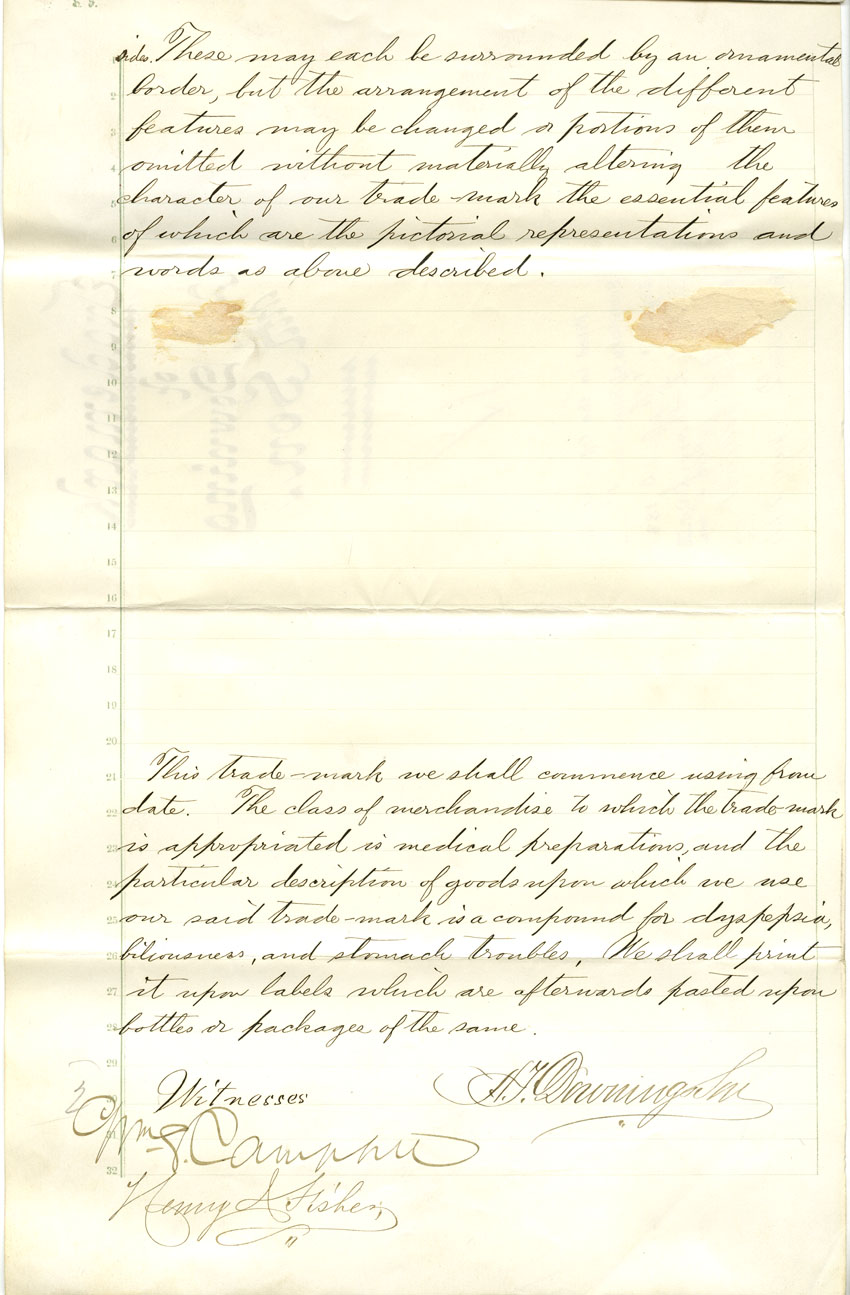 sides. These may each be surrounded by an ornamental
border, but the arrangement of the different
features may be changed or portions of them
omitted without materially altering the
character of our trade-mark the essential features
of which are the pictorial representations and
words as above described.
8
9
10
11
12
13
14
15
16
17
18
19
20
21 This trade-mark we shall commence using from
22 date. The class of merchandise to which the trade-mark
23 is appropriated is medical preparations, and the
24 particular description of goods upon which we use
25 our said trade-mark is a compound for dyspepsia,
26 biliousness, and stomach troubles. We shall print
27 it upon labels which are afterwards pasted upon
28 bottles or packages of the same.
29
Witnesses
H. F. Downing & Son
Wm S. Campbell
32
Henry S. Fisher